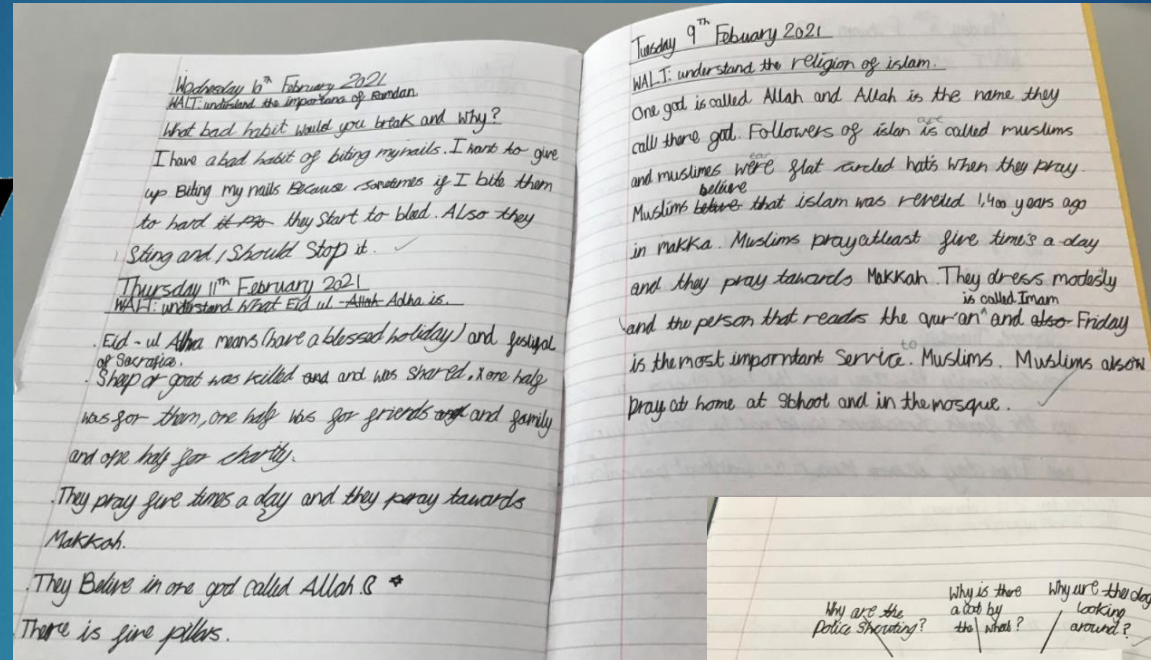 Wednesday 10th February 2021
WALT: understand the importance of Ramdan.
What bad habit would you break and why?
I have a bad habit of biting my nails. I want to give
up Biting my nails Because sometimes if I bite them
to hard they start to bleed. Also they
Sting and I Should Stop it.
Thursday 11th February 2021
WALT: understand what Eid ul Allah Adha is.
. Eid-ul Adha means (have a blessed holiday) and festival
of Sacrafice.
. Sheep or goat was killed and and was shared, one half
was for them, one half was for friends and and family
and one half for charity.
. They pray five times a day and they pray tawards
Makkah.
. They Belive in one god called Allah
There is five pillars.
Tuesday 9Th Febuary 2021
WALT: understand the religion of islam.
One god is called Allah and Allah is the name they
are
call there god. Followers of islan is called muslims
ear
and muslimes were flat circled hats when they pray.
beleive
Muslims that islam was reveled 1,400 years ago
in makka. Muslims pray atleast five time's a day
and they pray tawards Makkah. They dress modestly
is called Imam
and the person that reads the qur'an^ and also Friday
to
is the most imporntant Service. Muslims. Muslims also
pray at home at School and in the mosque.
Why are the
Police Shouting?
Why is there
a lot by
the
Why are the dog
looking
around?